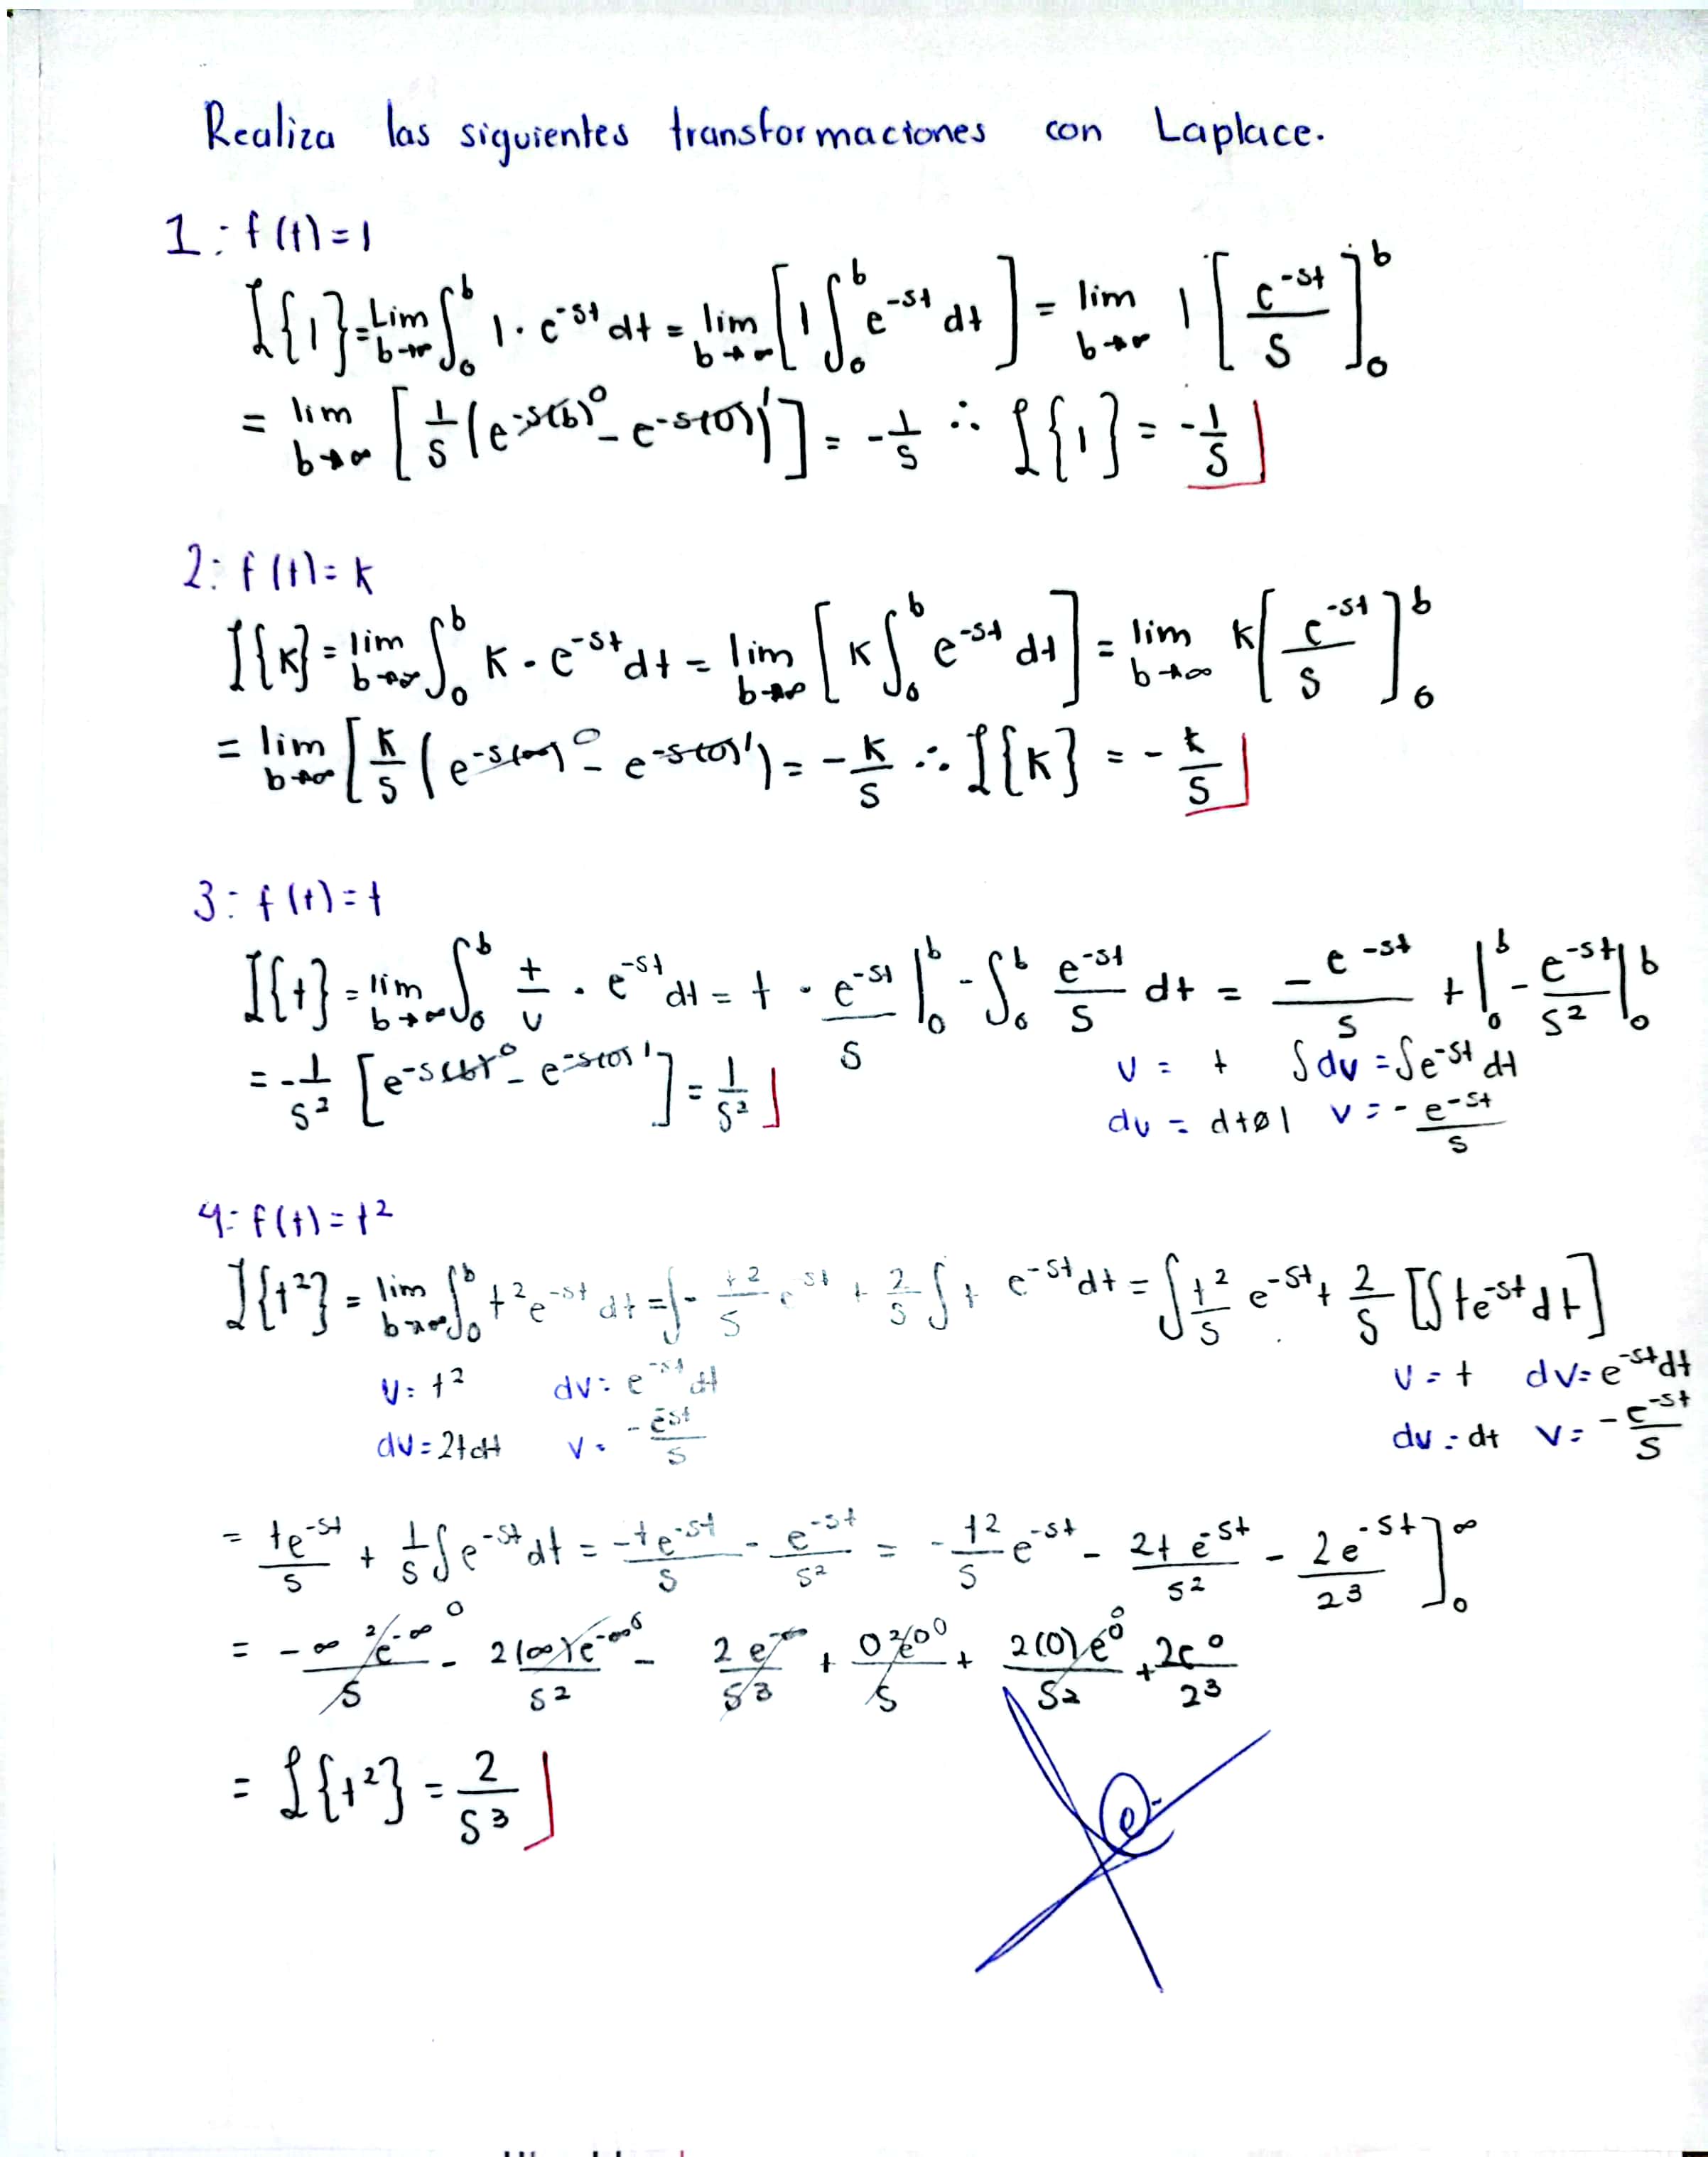 Realiza las siguientes transformaciones con Laplace.
1: f(t)=1
ℒ{1}=Lim b→∞ ∫₀ᵇ 1·e^-st dt = lim b→∞ [1∫₀ᵇ e^-st dt] = lim b→∞ 1[e^-st/s]₀ᵇ
= lim b→∞ [1/s(e^-s(b) 0 - e^-s(0) 1)] = -1/s ∴ ℒ{1} = -1/s
2: f(t)=k
ℒ{k} = lim b→∞ ∫₀ᵇ k·e^-st dt = lim b→∞ [k∫₀ᵇ e^-st dt] = lim b→∞ k[e^-st/s]₀ᵇ
= lim b→∞ [k/s (e^-s(∞) 0 - e^-s(0) 1) = -k/s ∴ ℒ{k} = -k/s
3: f(t)=t
ℒ{t} = lim b→∞ ∫₀ᵇ t/u · e^-st dt = t · e^-st/s |₀ᵇ - ∫₀ᵇ e^-st/s dt = -e^-st/s t|₀ᵇ - e^-st/s² |₀ᵇ
= -1/s² [e^-s(b) 0 - e^-s(0) 1] = 1/s²
u = t ∫dv = ∫e^-st dt
du = dt ø 1 v = - e^-st/s
4: f(t)=t²
ℒ{t²} = lim b→∞ ∫₀ᵇ t²e^-st dt = ∫- t²/s e^-st + 2/s ∫ t e^-st dt = ∫t²/s e^-st + 2/s [∫te^-st dt]
u= t² dv= e^-st dt u = t dv= e^-st dt
du= 2tdt v= - e^-st/s du = dt v= - e^-st/s
= te^-st/s + 1/s ∫e^-st dt = -te^-st/s - e^-st/s² = -t²/s e^-st - 2te^-st/s² - 2e^-st/2³ ]₀^∞
= -∞² e^-∞/s 0 - 2(∞)e^-∞/s² 0 - 2e^-∞/s³ + 0²e⁰/s 0 + 2(0)e⁰/s² 0 + 2e⁰/2³
= ℒ{t²} = 2/s³